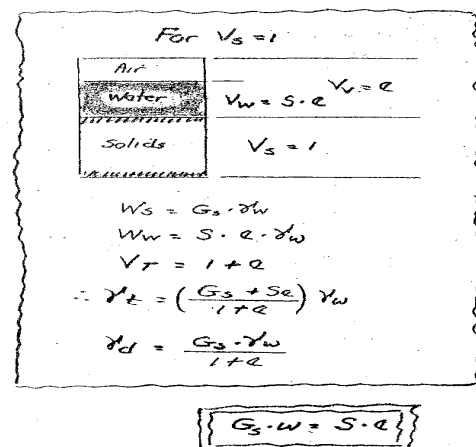 For Vs = 1
Air
Water
Vw = S·e
Vv = e
Solids
Vs = 1
Ws = Gs·γw
Ww = S·e·γw
VT = 1 + e
∴ γt = (Gs + Se / 1 + e) γw
γd = Gs·γw / 1 + e
Gs·w = S·e